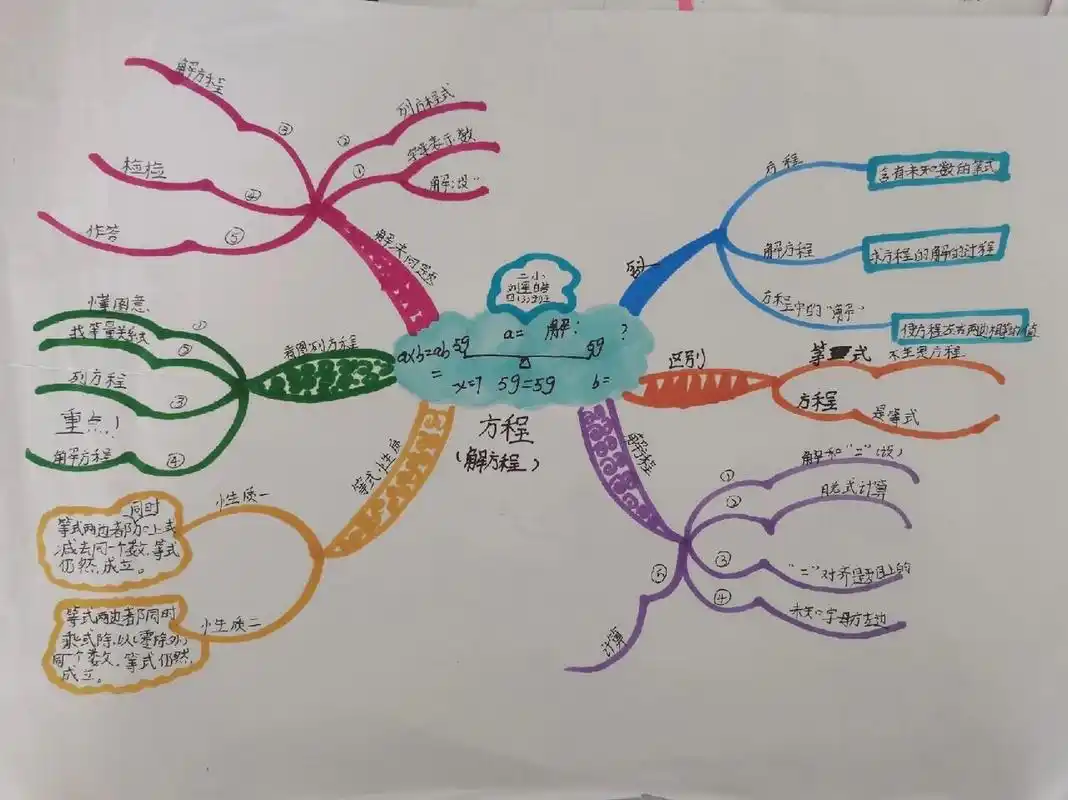 解方程
③
检检
④
作答
⑤
②
列方程式
①
字母表示数
解:设"
解决问题
懂图意
①
找等量关系式
②
列方程
③
重点!
解方程
④
看图列方程
等式性质
性质一
同时
等式两边都加上或
减去同一个数,等式
仍然,成立。
性质二
等式两边都同时
乘或除,以(零除外)
同一个数,等式仍然,
成立。
二小
a= 解: ?
a×b=ab 5g 5g
=
x=? 5g=5g b=
方程
(解方程)
方程
含有未知数的等式
解方程
求方程的解的过程
方程中的"解"
使方程左右两边相等的值
区别
等式
不一定是方程
方程
是等式
解方程
①
解和"="(放)
②
脱式计算
③
"="对齐题目上的
④
未知字母方左边
⑤
计算